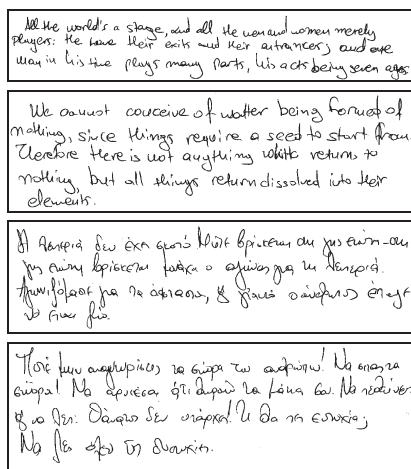 All the world's a stage, and all the men and women merely
players: they have their exits and their entrances; and one
man in his time plays many parts, his acts being seven ages
We cannot conceive of matter being formed of
nothing, since things require a seed to start from.
Therefore there is not anything which returns to
nothing, but all things return dissolved into their
elements.
Η λευτεριά δεν έχει σκοπό Μήτε βρίσκεται στη γης ετούτη. Στη
γης ετούτη βρίσκεται μονάχα ο αγώνας για τη λευτεριά.
Αγωνιζόμαστε για τα άφταστα, γι' αυτό ο άνθρωπος έπαψε
να είναι ζώο.
Ποτέ μην αναγνωρίσεις τα σύνορα του ανθρώπου! Να σπας τα
σύνορα! Να αρνιέσαι ότι θωρούν τα μάτια σου. Να πεθαίνεις
και να λες: Θάνατος δεν υπάρχει! Τι θα πη ευτυχία;
Να ζεις όλες τις δυστυχίες.